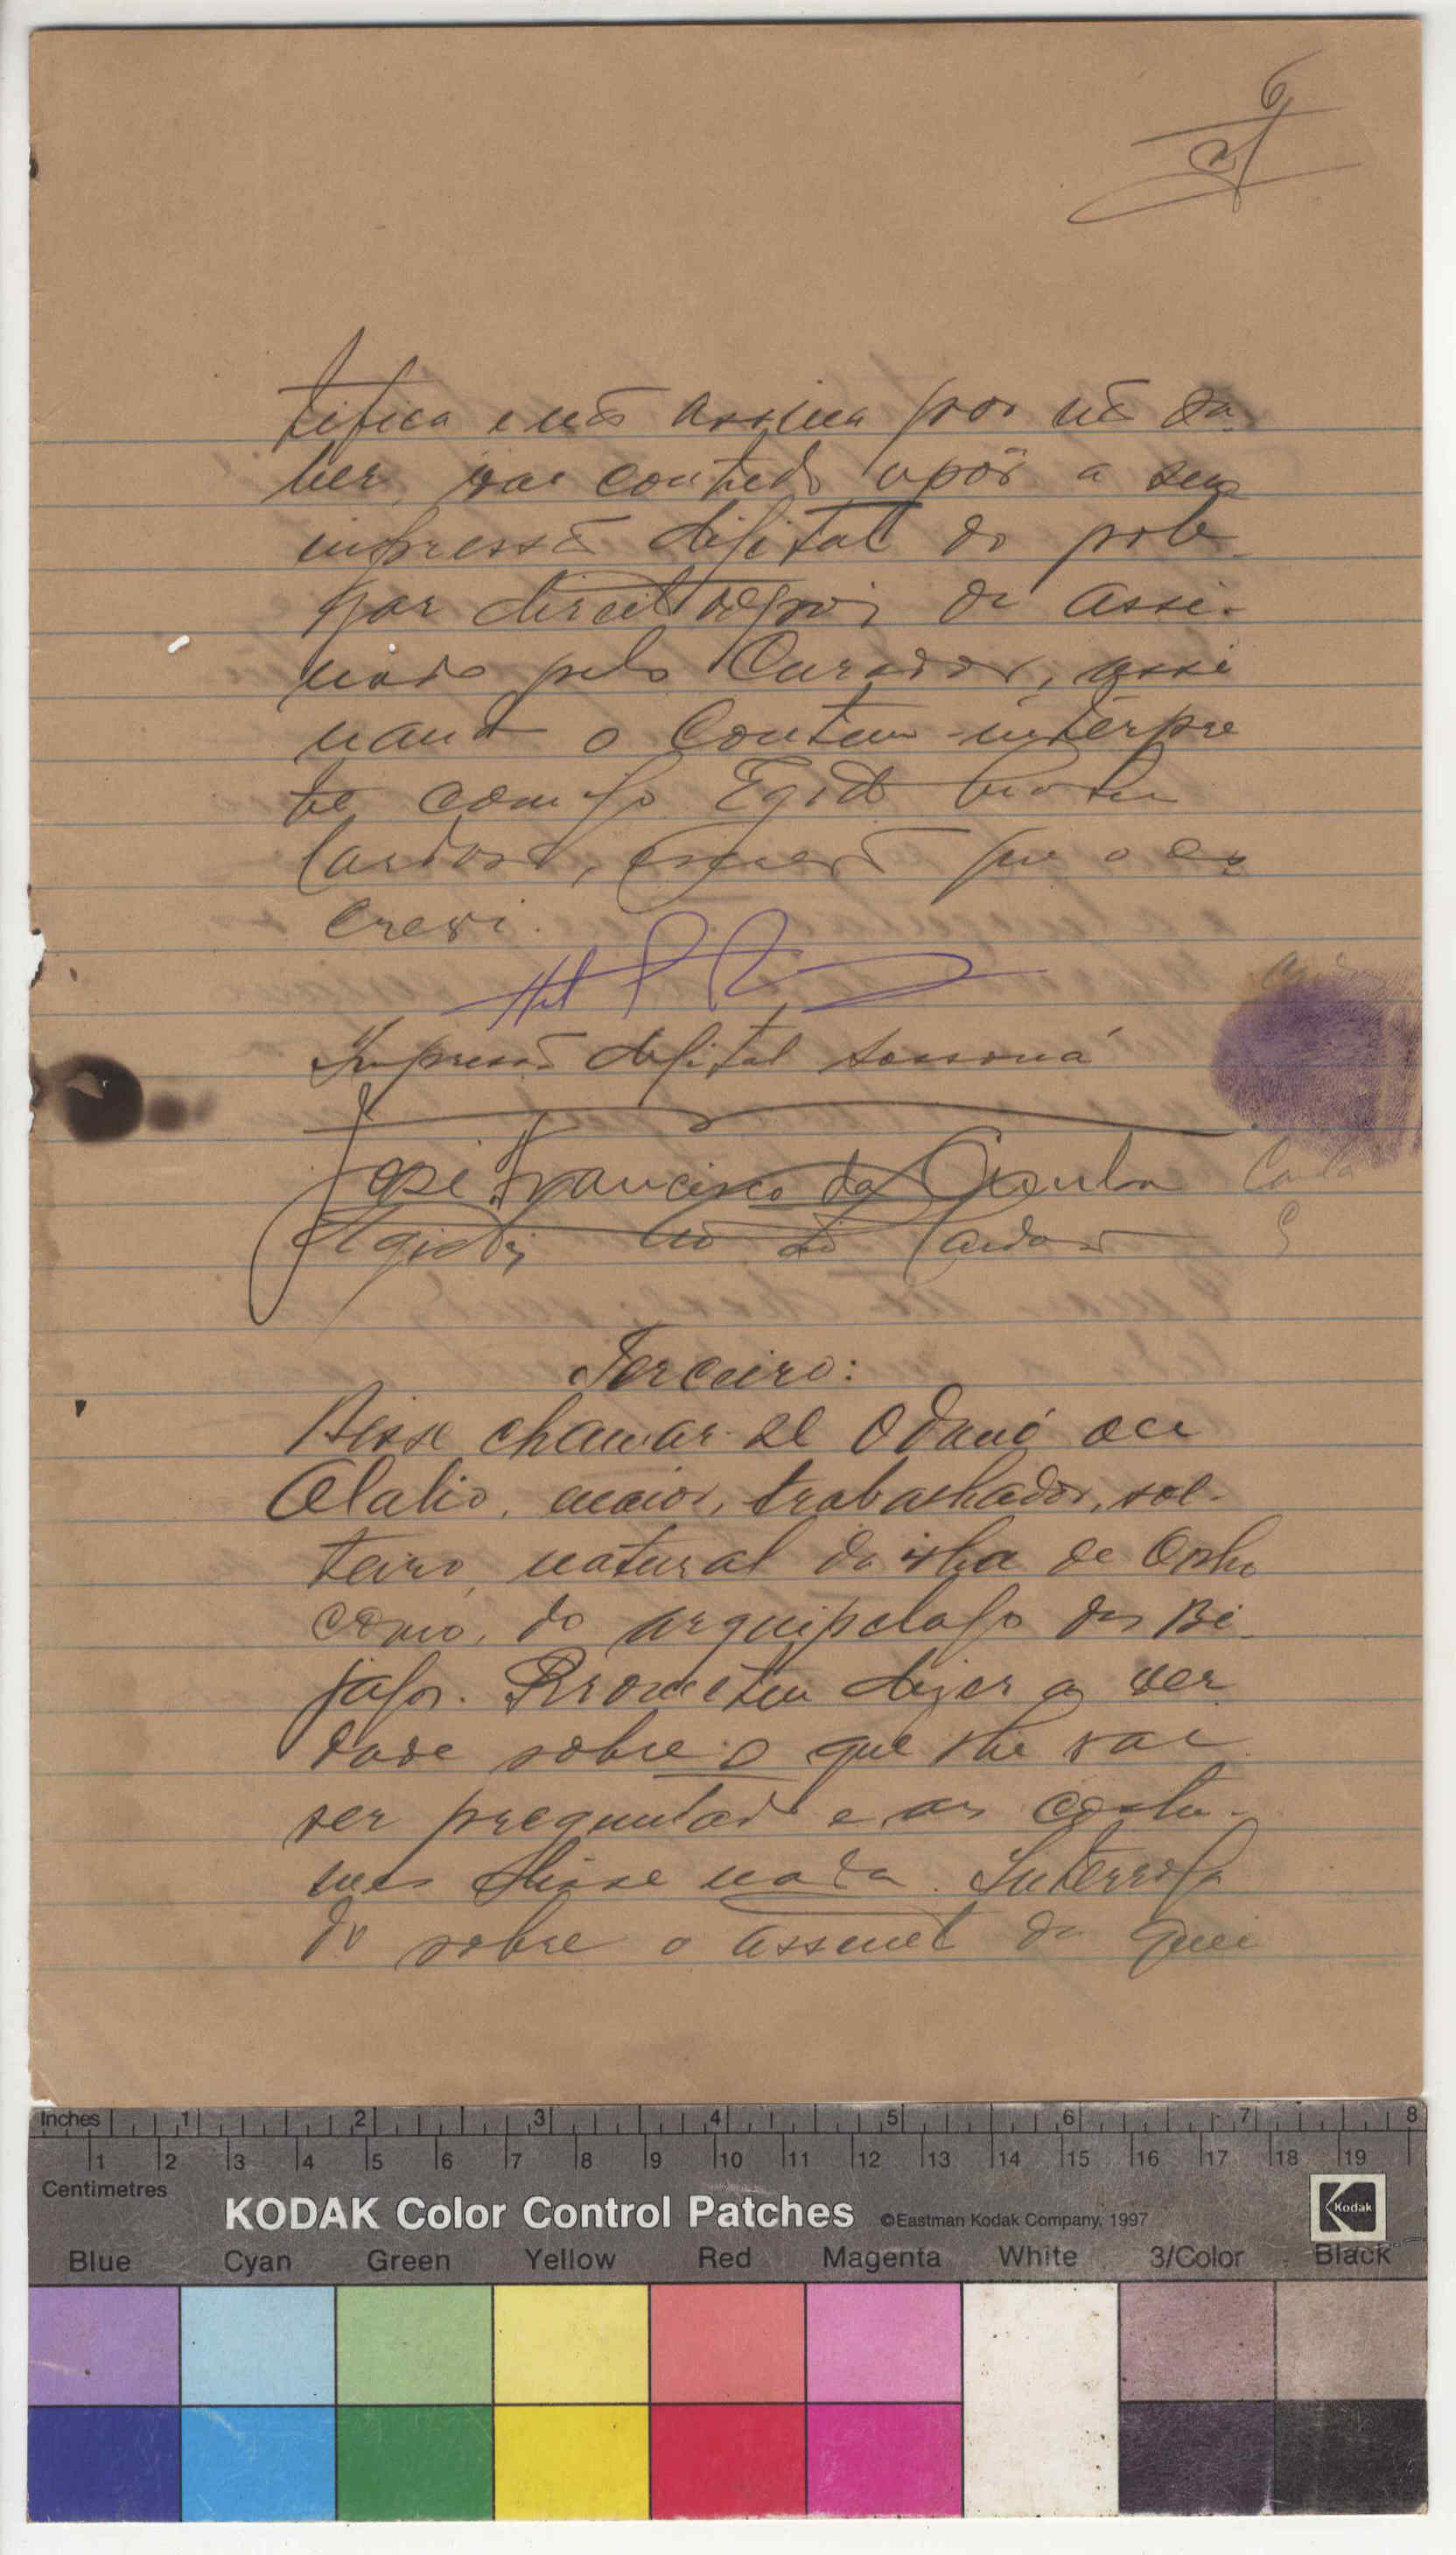 6
tifica e não assina por não sa-
ber, vae contudo apôr a sua
impressão digital do pole-
gar direito depois de assi-
nado pelo Curador, assi
nando o Contem intérpre
te comigo Egidio
Cardoso, escrivão que o es
crevi.
Impressão digital Sossoná
José Francisco da
Egidio Cardoso
Terceiro:
Disse chamar-se Oduné
Olalio, maior, trabalhador, sol-
teiro, natural da ilha de
do arquipelago dos Bi-
jagos. Prometeu dizer a ver
dade sobre o que lhe vae
ser preguntado e aos costu-
mes disse nada. Interroga
do sobre o assunto da quei
Inches 1 2 3 4 5 6 7 8
1 2 3 4 5 6 7 8 9 10 11 12 13 14 15 16 17 18 19
Centimetres
KODAK Color Control Patches ©Eastman Kodak Company, 1997 Kodak
Blue Cyan Green Yellow Red Magenta White 3/Color Black